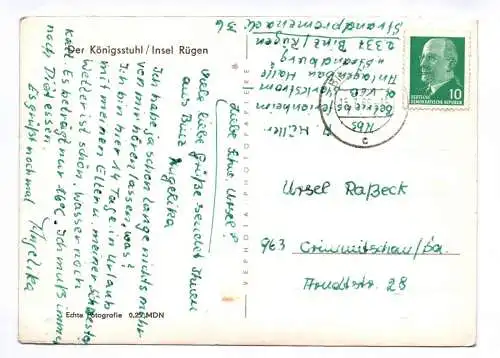 Der Königsstuhl / Insel Rügen
Liebe Ursel!
Viele liebe Grüße sendet Ihnen
aus Binz Angelika
Ich habe ja schon lange nichts mehr
von mir hören lassen, was?
Ich bin hier 14 Tage in Urlaub
mit meinen Eltern u. meiner Schwester
Wetter ist schön. Wasser noch
kalt. Es beträgt nur 16°C. Ich muß immer
noch Diät essen.
Es grüßt nochmal Angelika
Echte Fotografie 0,25 MDN
VEB POLYPHOTOPOSTKARTE
Betriebsferienheim
d. VEB Starkstrom
Anlagenbau Halle
"Strandburg"
2337 Binz / Rügen
Strandpromenade 36
DEUTSCHE
DEMOKRATISCHE REPUBLIK 10
c
Ursel Raßeck
963 Crimmitschau/Sa.
Arndtstr. 28